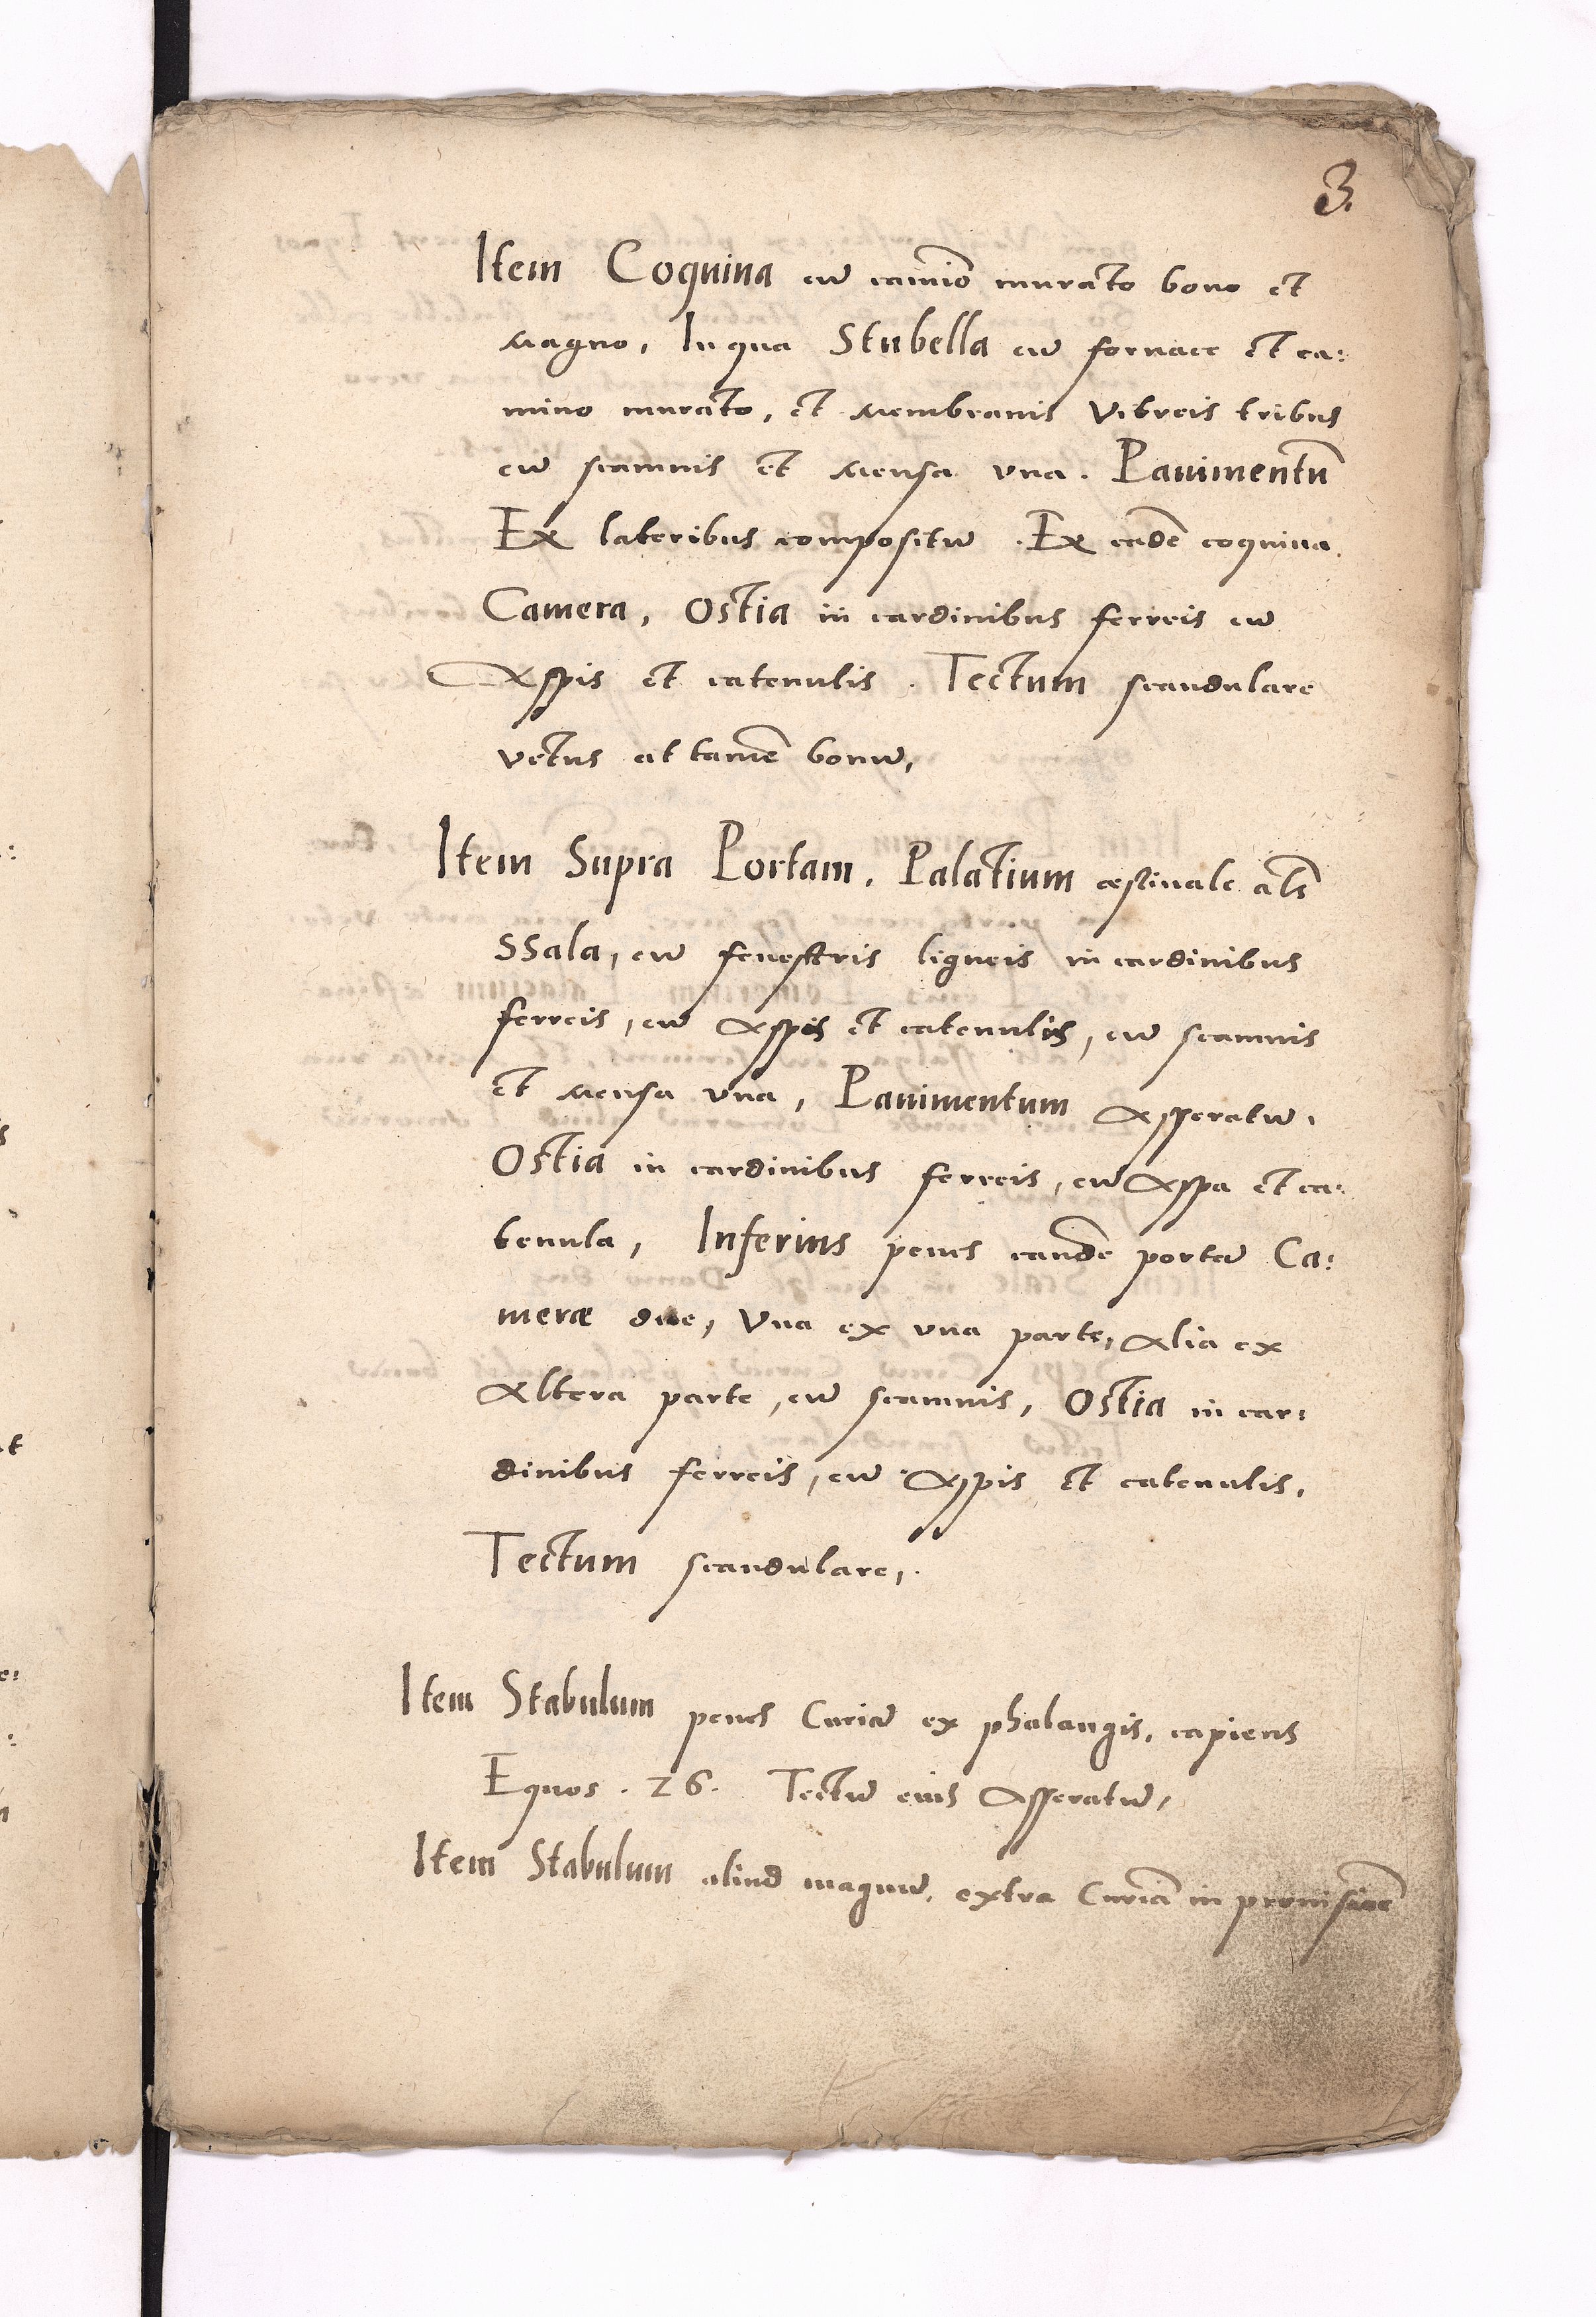 3.
Item Coquina cū camīo murato bono et
magno, In qua Stubella cū fornace et ca:
mino murato, et membranis vitreis tribus
cū scamnis et mensa una. Pauimentū
Ex lateribus compositū. Ex eadē coquina
Camera, Ostia in cardinibus ferreis cū
Asspis et catenulis. Tectum scandulare
vetus at tamē bonū,
Item Supra Portam, Palatium æstiuale als̄
SSala, cū fenestris ligneis in cardinibus
ferreis, cū Asspis et catenulis, cū scamnis
et mensa vna, Pauimentum Assperatū.
Ostia in cardinibus ferreis, cū Asspa et ca:
tenula, Inferius penes eandē portā Ca:
meræ due, Vna ex vna parte, Alia ex
Altera parte, cū scamnis, Ostia in car:
dinibus ferreis, cū Asspis et catenulis,
Tectum scandulare,.
Item Stabulum penes Curiā ex phalangis, capiens
Equos . 26. Tectū eius Asseratū,
Item Stabulum aliud magnū, extra Curiā in